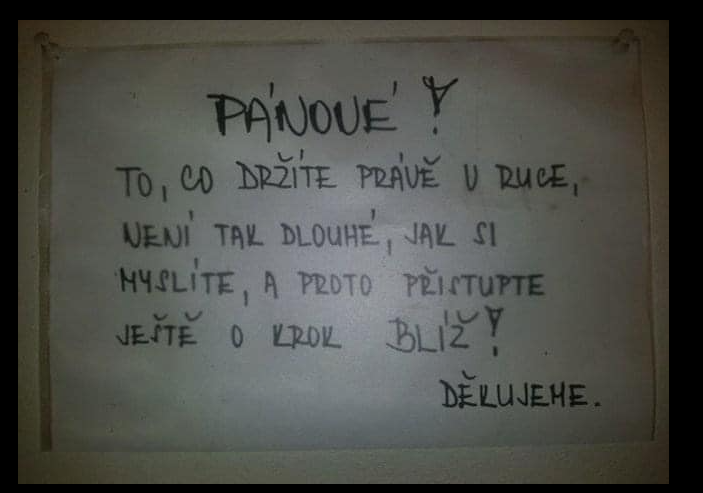 PÁNOVÉ!
TO, CO DRŽÍTE PRÁVĚ V RUCE,
NENÍ TAK DLOUHÉ, JAK SI
MYSLÍTE, A PROTO PŘISTUPTE
JEŠTĚ O KROK BLÍŽ!
DĚKUJEME.